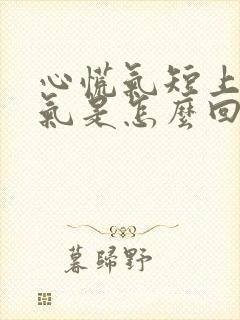 心慌氣短上
氣是怎麼回
暮歸野